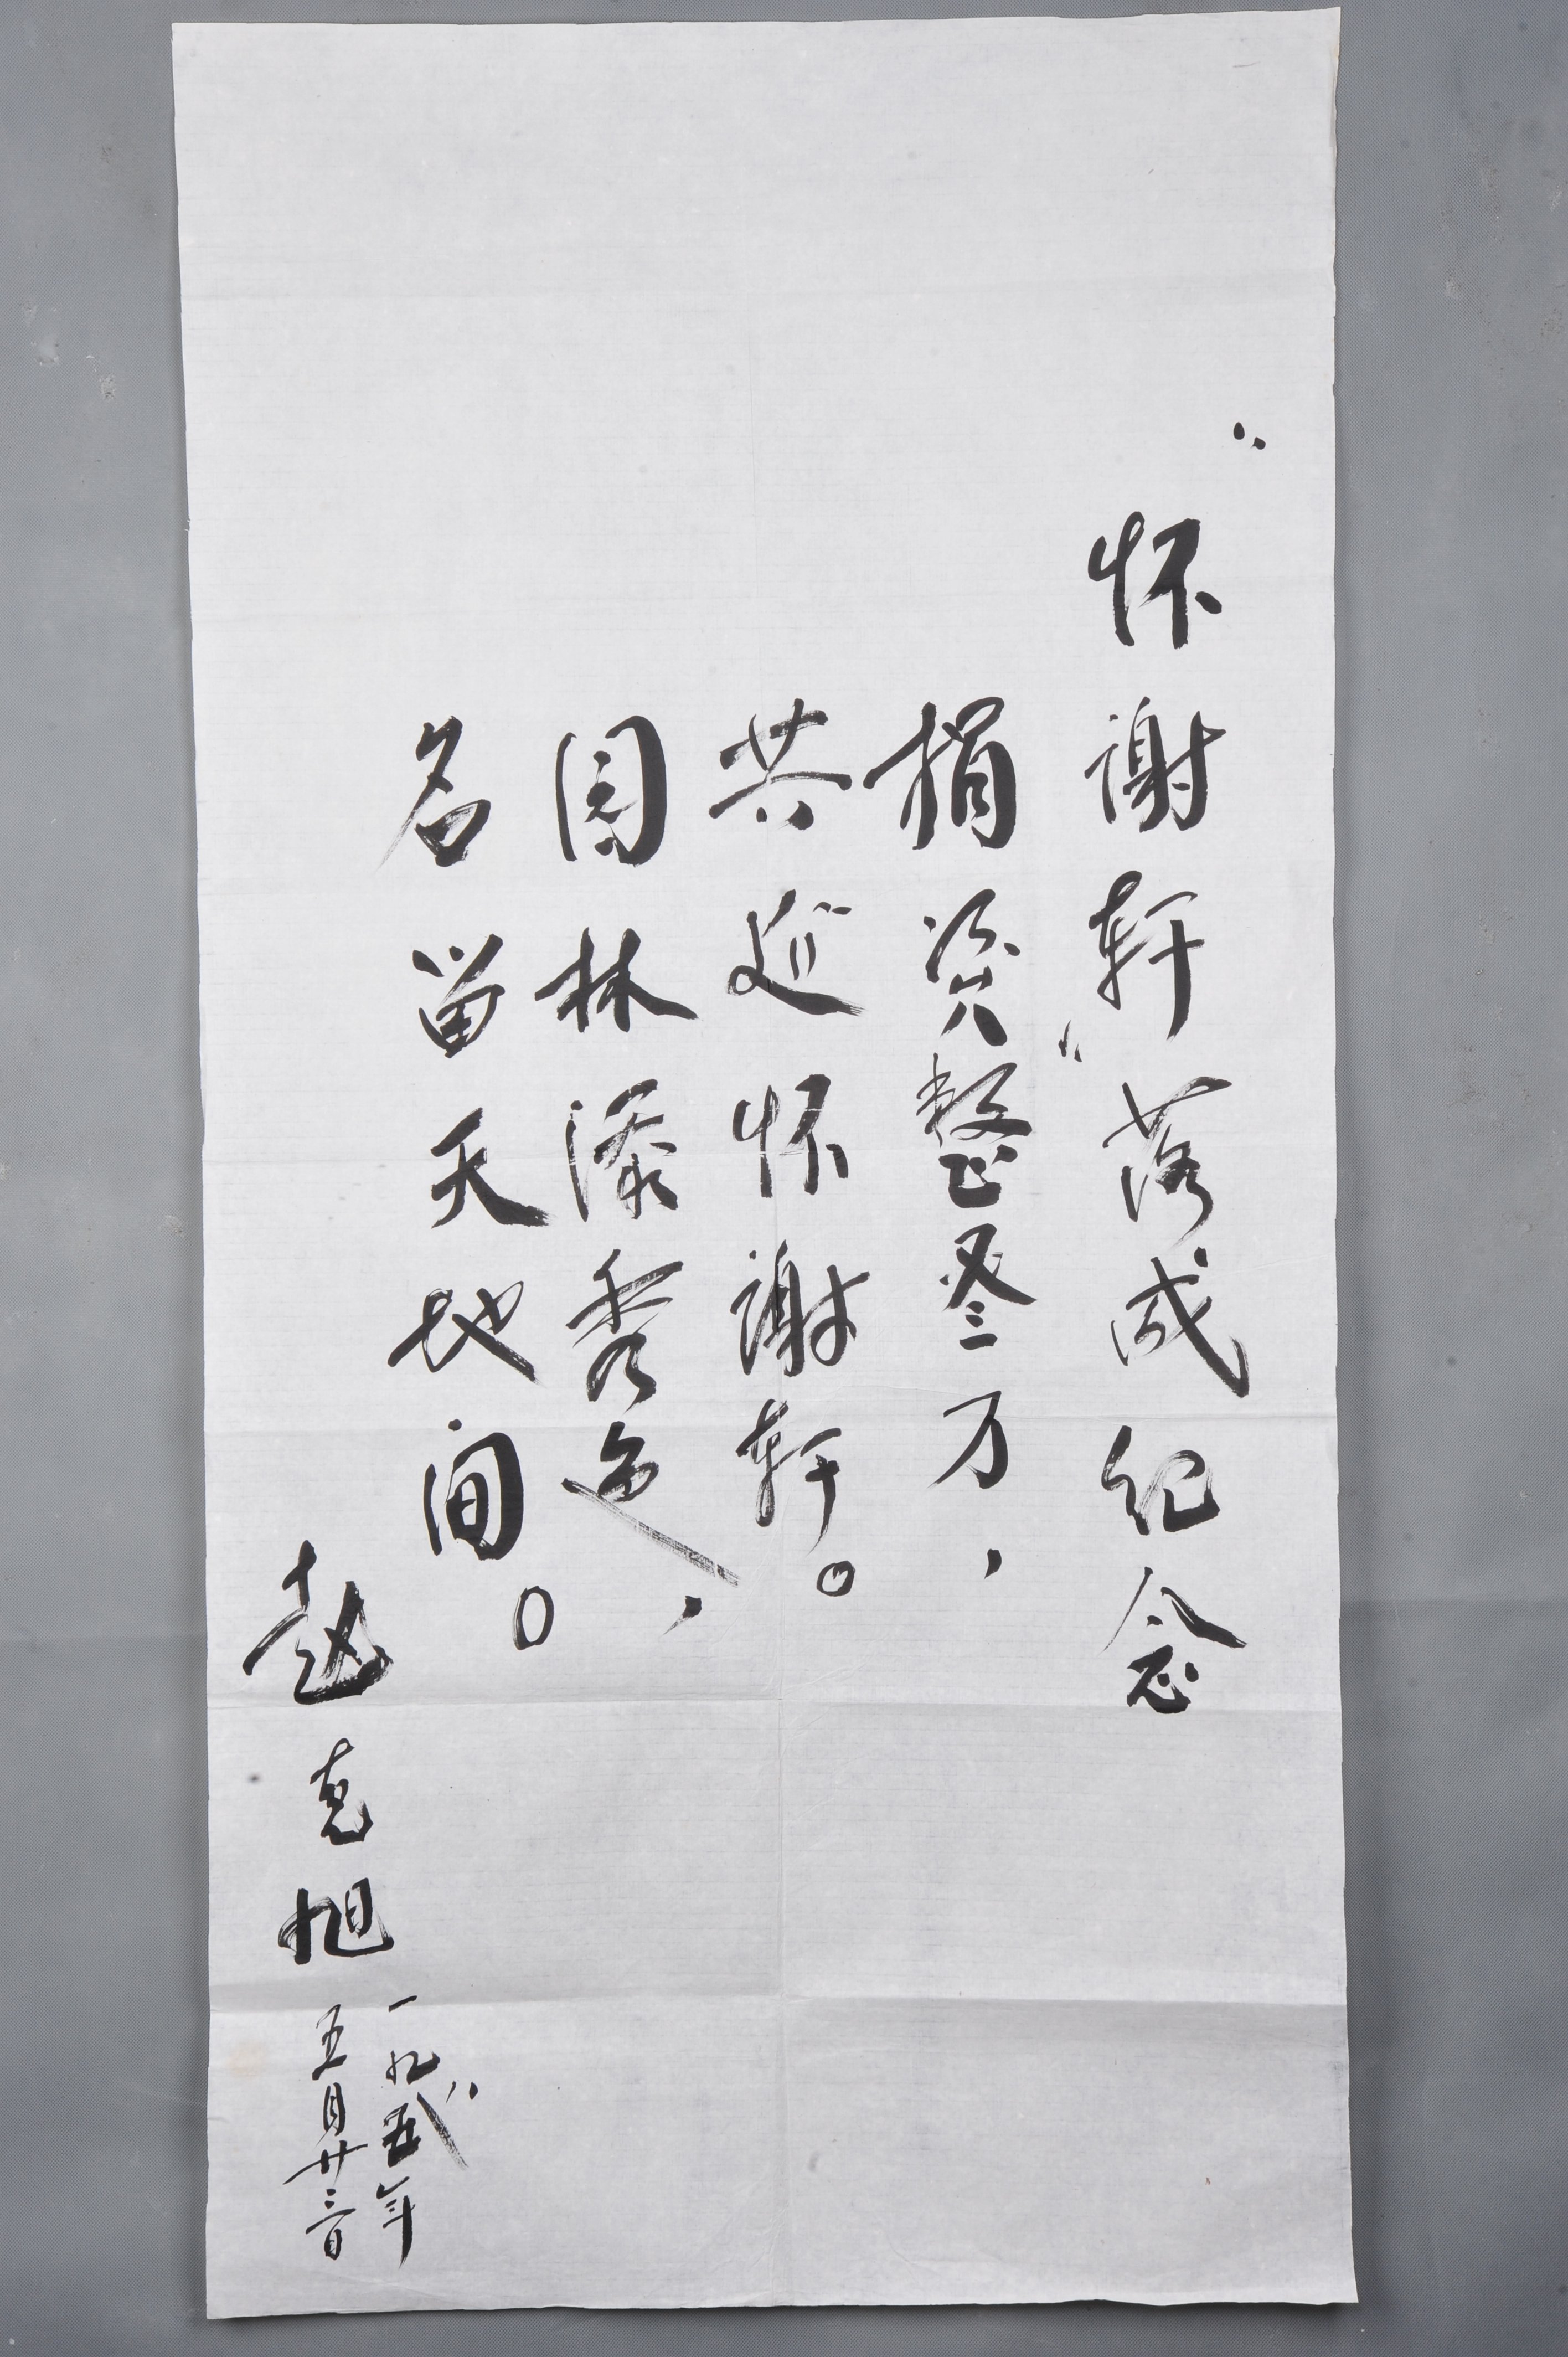 “怀谢轩”落成纪念
捐资整叁万，
共建怀谢轩。
园林添秀色，
名留天地间。
赵克旭
一九五年
五月廿三日